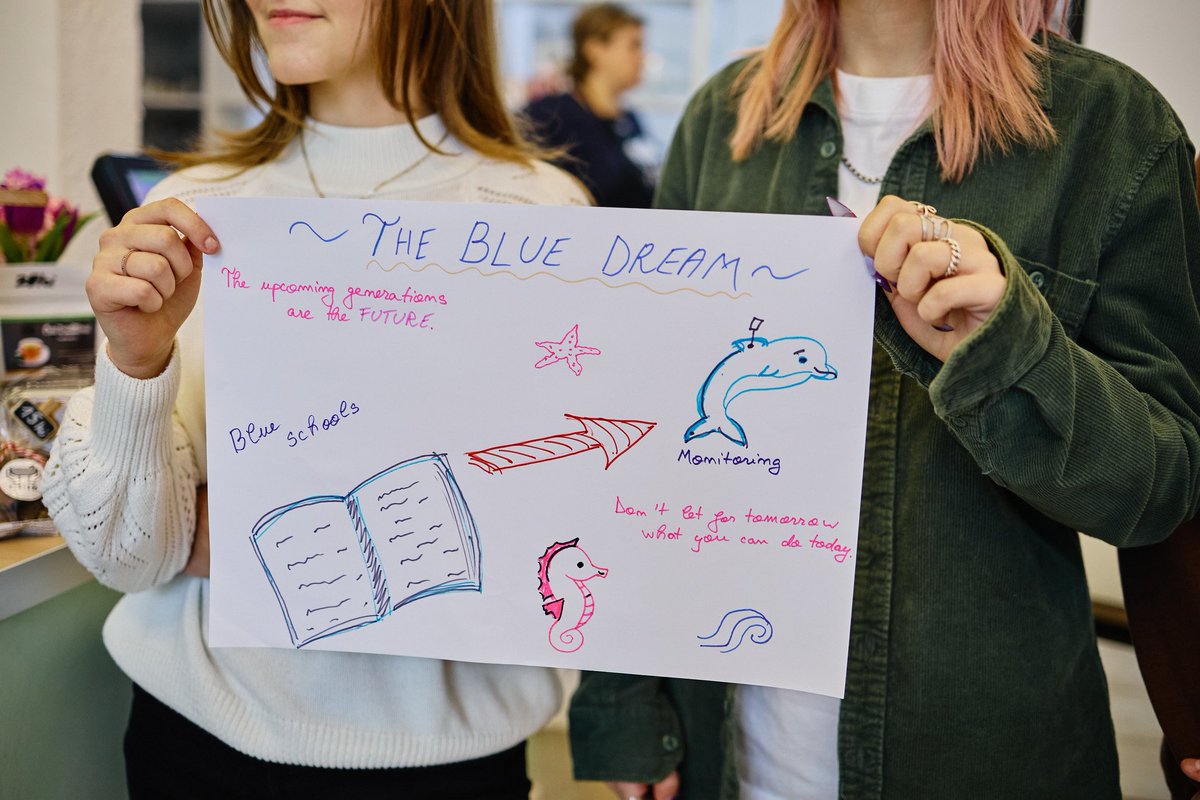 ~ THE BLUE DREAM ~
The upcoming generations
are the FUTURE.
Blue
schools
Monitoring
Don't let for tomorrow
what you can do today.